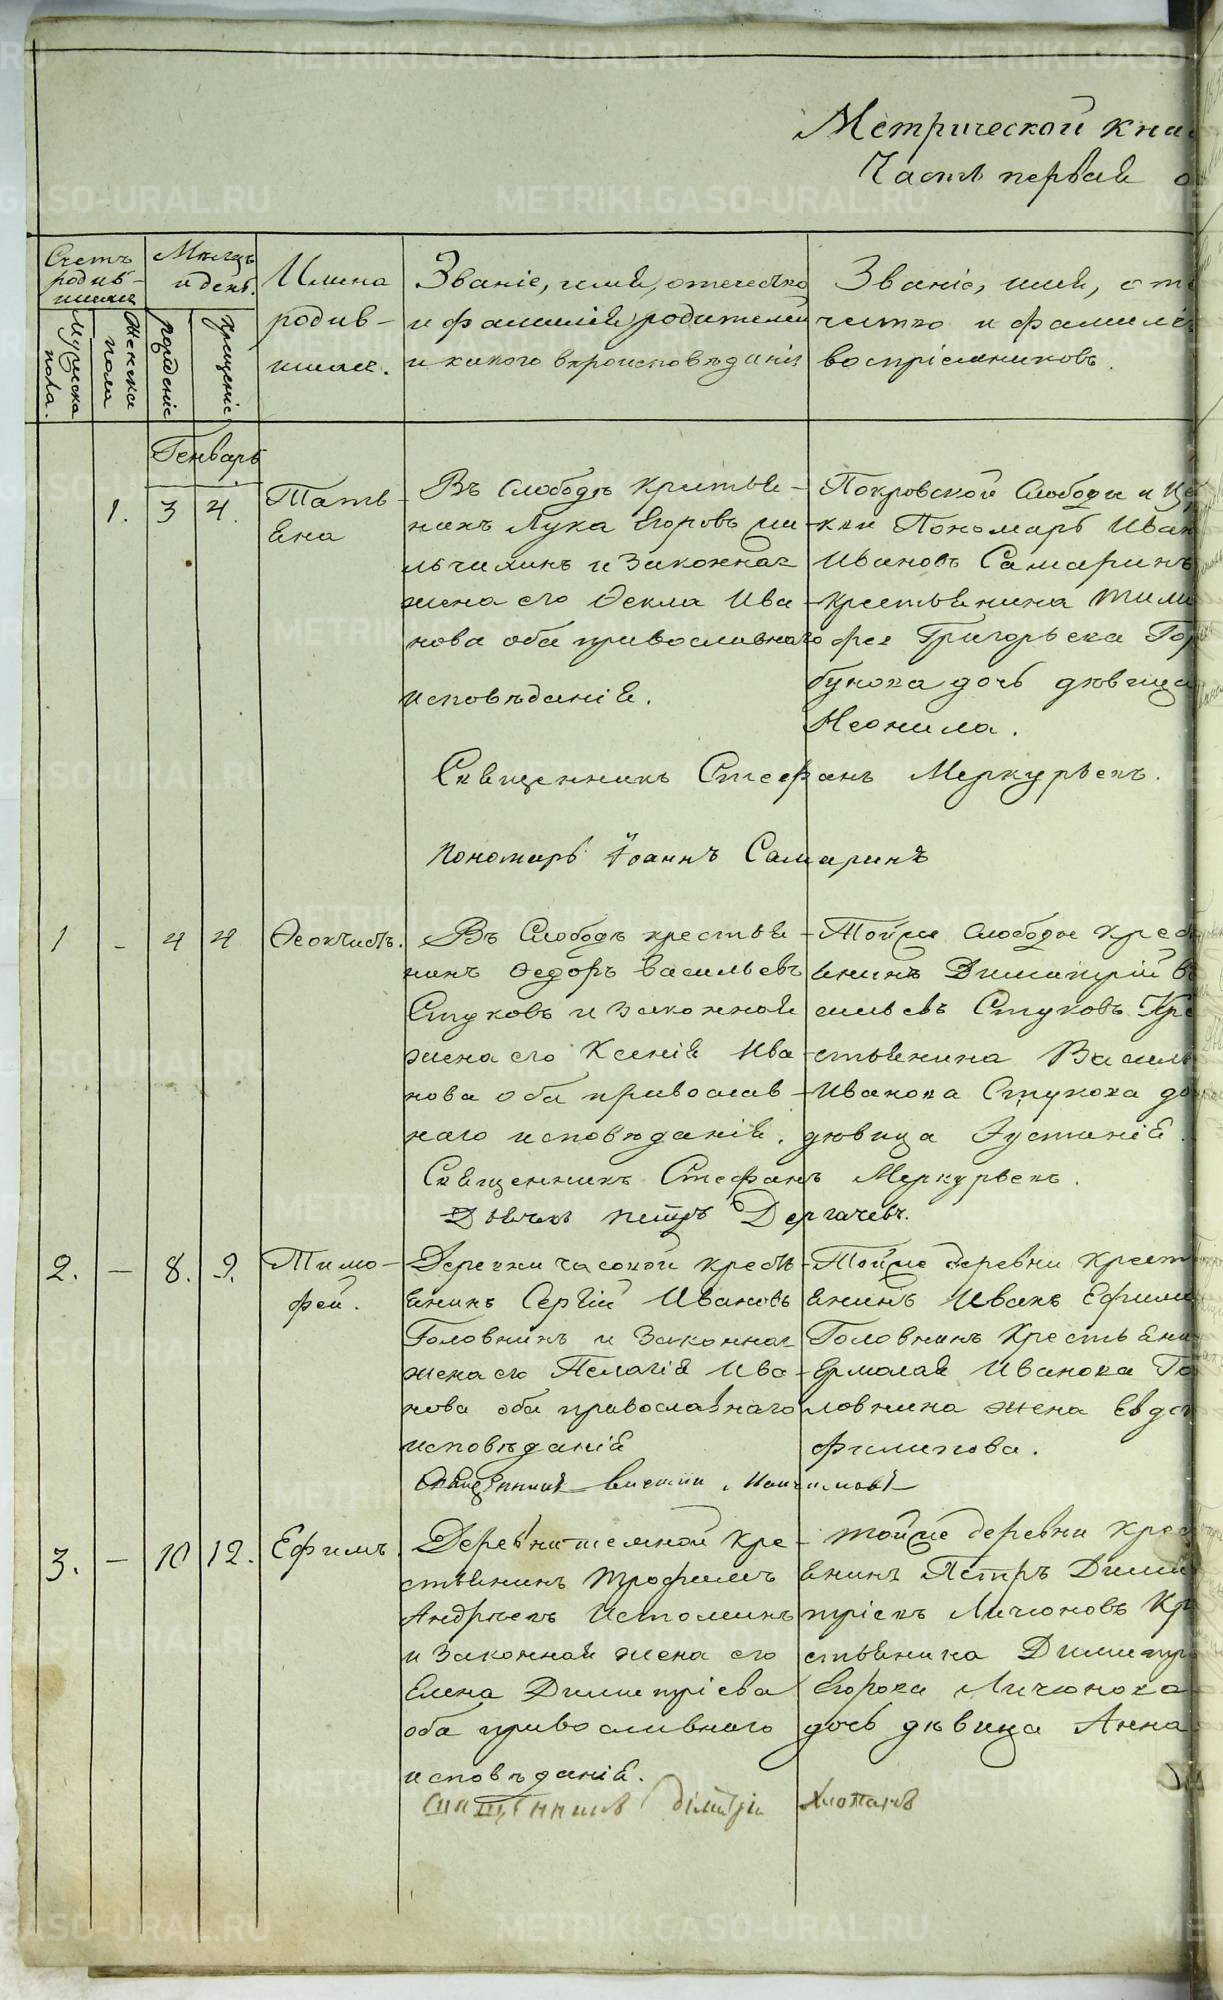 Метрической кни
Часть первая о
Счетъ родив-шихся
Мѣсяцъ и день.
Имена родив-шихся.
Званіе, имя, отечество и фамилія родителей и какого вѣроисповѣданія
Званіе, имя, оте чество и фамилія воспріемниковъ.
Мужеска пола.
Женска пола
рожденіе
крещеніе
Генварь
1. 3 4.
Тать-
яна
Въ Слободѣ крестья-
нинъ Лука Егоровъ
и законная
жена его Ѳекла Ива-
нова оба православнаго
исповѣданія.
Покровской Слободы и Цер
кви Пономарь Иван
Ивановъ Самаринъ
крестьянина Тимо
фея Григорьева Гор
бунова дочь дѣвица
Неонила.
Священникъ Стефанъ Меркурьевъ.
Пономарь Іоаннъ Самаринъ
1 - 4 4
Ѳеоктистъ.
Въ Слободѣ крестья-
нинъ Ѳедоръ Васильевъ
Стуковъ и законная
жена его Ксенія Ива-
нова оба православ-
наго исповѣданія.
Тойже Слободы кресть
янинъ Димитрій Ва
сильевъ Стуковъ Кре
стьянина Василья
Иванова Стукова до
дѣвица Іустинія.
Священникъ Стефанъ Меркурьевъ.
Дьячекъ Петръ Дергачевъ.
2. - 8. 9.
Тимо-
фей.
Деревни Часовой кресть-
янинъ Сергій Ивановъ
Головнинъ и законная
жена его Пелагія Ива-
нова оба православнаго
исповѣданія
Тойже деревни Крест
янинъ Иванъ Ефимо
Головнинъ Крестьяни
Ермолая Иванова Го
ловнина жена Евдо
филипова.
Священникъ
3. - 10 12.
Ефимъ.
Деревни Темной Кре-
стьянинъ Трофимъ
Андрѣевъ Истоминъ
и законная жена его
Елена Димитріева
оба православнаго
исповѣданія.
Тойже деревни Крест
янинъ Петръ Дими
тріевъ Личюновъ Кр
стьянина Димитр
Егорова Личюнова
дочь дѣвица Анна
Священникъ Дімітрій Хлопановъ
METRIKI.GASO-URAL.RU